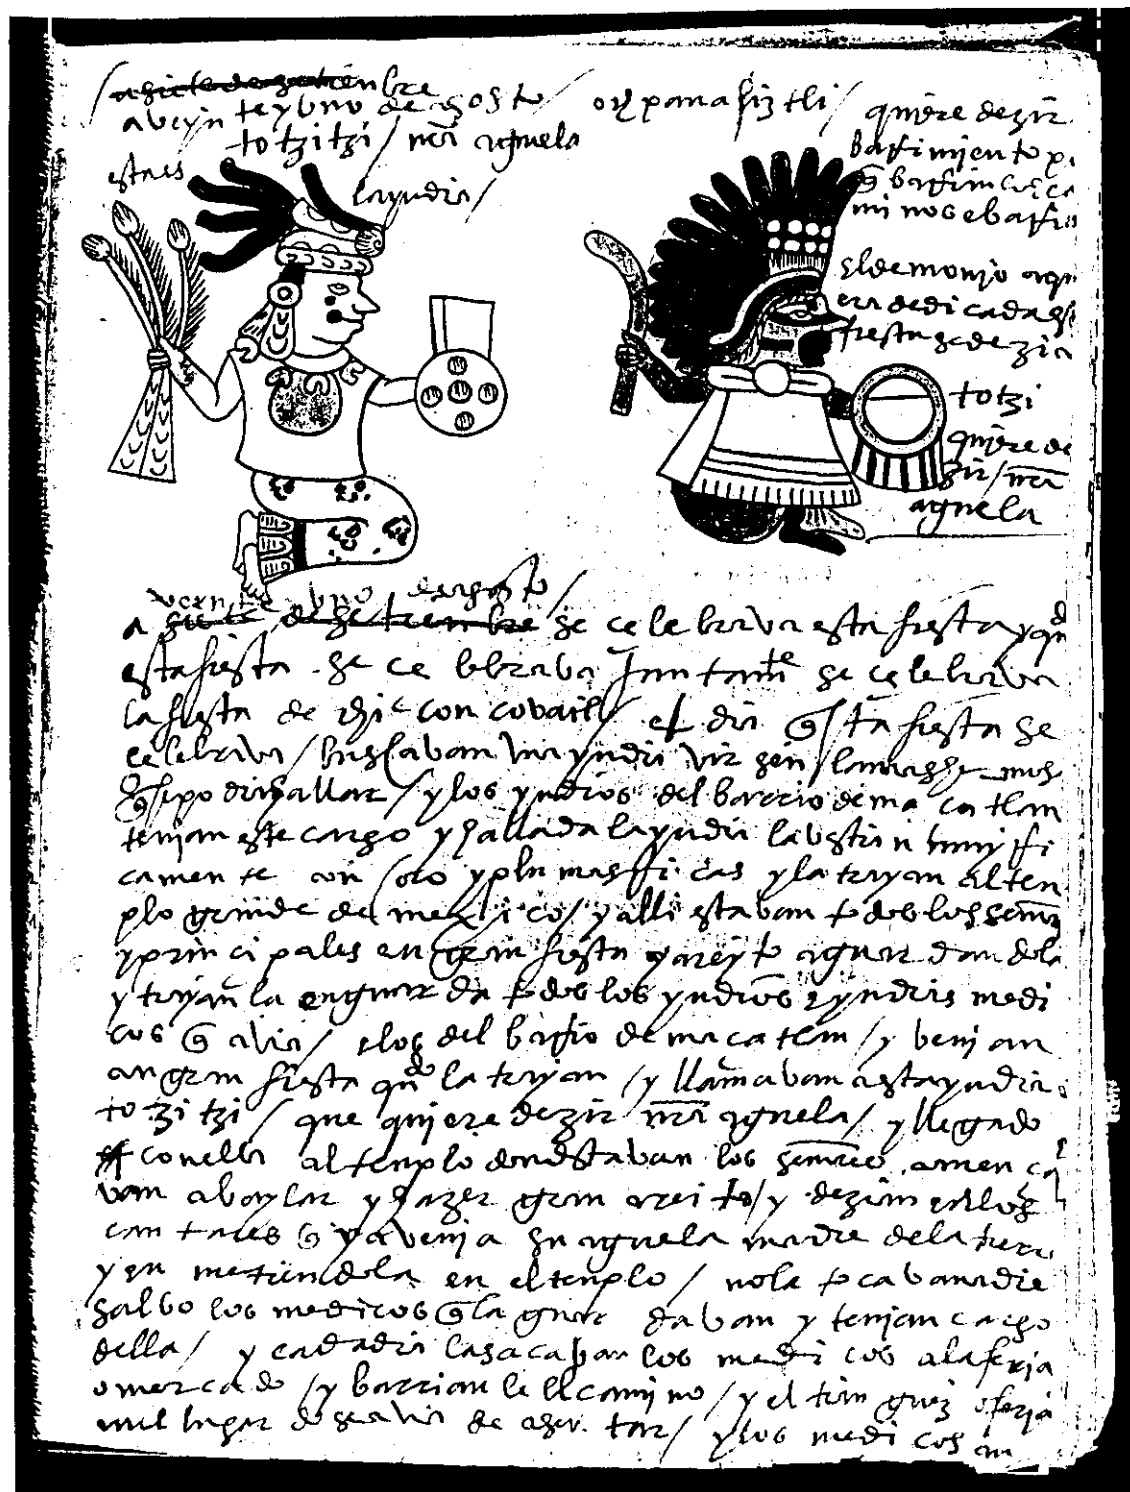 a siete de setienbre
a veyn te y uno de agosto / ochpanaliztli / quiere dezir
totzitzi / nra aguela
barrimjento
esta es
q barrian
la yndia /
mi nos e barrios
El demonjo
era dedicada
fiesta se dezia
totzi
quiere de
zir / nra
aguela
veynte y uno de agosto /
a siete de setienbre se çelebrava esta fiesta y
esta fiesta se celebrava Juntamte se çelebrava
la fiesta de chicomcovatl / el dia q sta fiesta se
celebrava / buscavan una yndia virgen / la mas hermosa
q se podia hallar / y los yndios del barrio de macatlan
tenjan este cargo y hallada la yndia la vestian
camente con oro y plumas ricas y la trayan al ten
plo grande de mexico / y alli estavan todos los
y principales en gran fiesta y areyto aguardandola
y trayanla en guarda todos los yndios e yndias medi
cos q avia / e los del barrio de macatlan / y venjan
en gran fiesta qndo la trayan / y llamavan a esta yndia
totzitzi / que qujere dezir nra aguela / y llegado
con ella al templo dondestavan los señores comença
van a baylar y hazer gran areito / y dezian en los
cantares q ya venja su aguela madre de la tierra
y en metiendola en el templo / no la tocava nadie
salvo los medicos q la guardavan y tenjan cargo
della / y cada dia la sacavan los medicos a la feria
o mercado / y barrianle el camino / y el tianguez o feria
en el lugar do se avia de asentar / y los medicos